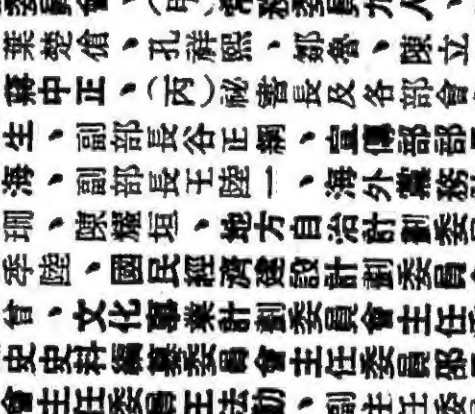 委員會、(甲)常務委員九人、
葉楚傖、孔祥熙、鄒魯、陳立
蔣中正、(丙)祕書長及各部會
生、副部長谷正綱、宣傳部部
海、副部長王陸一、海外黨務
珊、陳耀垣、地方自治計劃委
季陸、國民經濟建設計劃委員
會、文化事業計劃委員會主任
史史料編纂委員會主任委員邵
會主任委員王法勤、副主任委